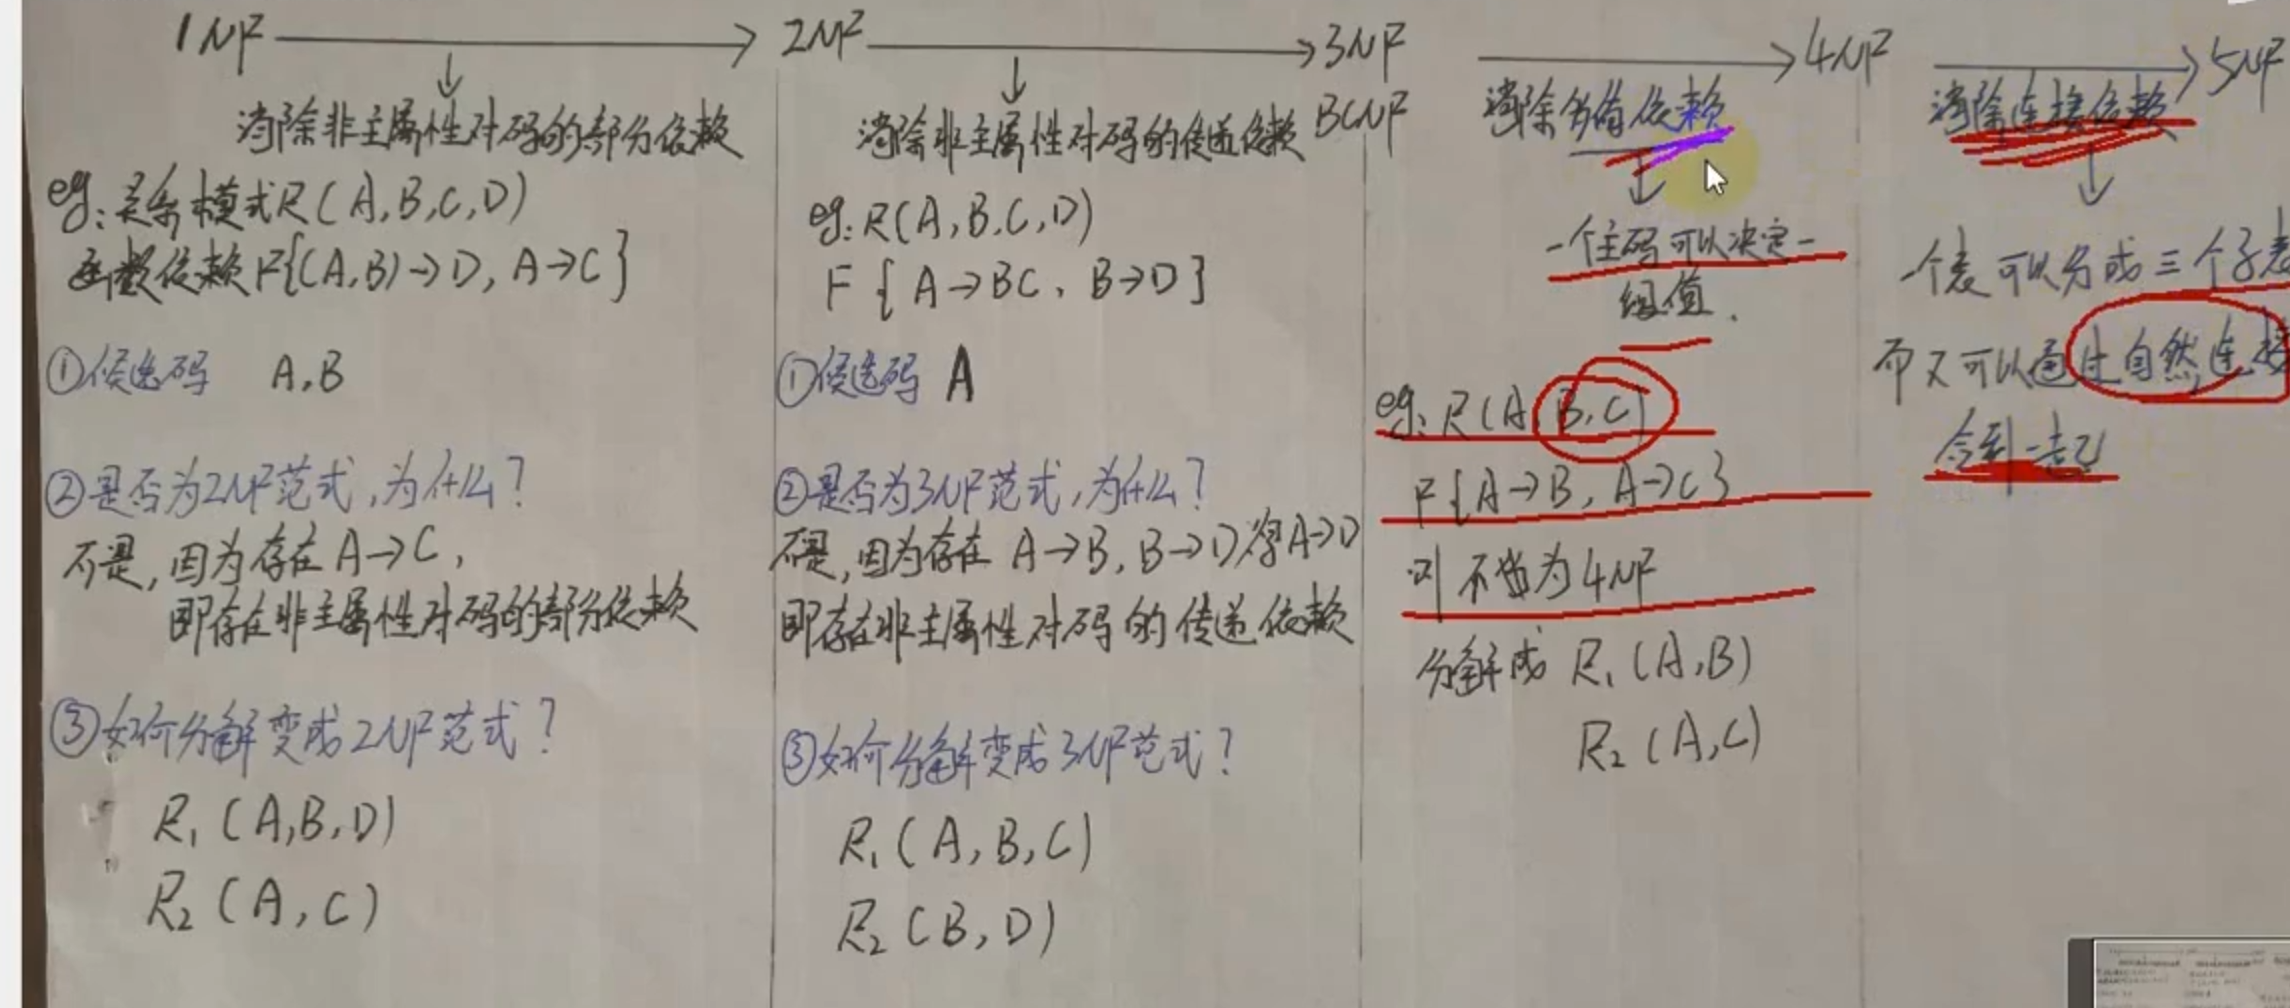 1NF → 2NF → 3NF → 4NF → 5NF
BCNF
↓
消除非主属性对码的部分依赖
eg:关系模式R(A,B,C,D)
函数依赖F{(A,B)→D, A→C}
①候选码 A,B
②是否为2NF范式,为什么?
不是,因为存在A→C,
即存在非主属性对码的部分依赖
③如何分解变成2NF范式?
R₁(A,B,D)
R₂(A,C)
↓
消除非主属性对码的传递依赖
eg:R(A,B,C,D)
F{A→BC、B→D}
①候选码 A
②是否为3NF范式,为什么?
不是,因为存在 A→B,B→D得A→D
即存在非主属性对码的传递依赖
③如何分解变成3NF范式?
R₁(A,B,C)
R₂(B,D)
消除多值依赖
↓
一个主码可以决定一
组值.
eg:R(A,B,C)
F{A→B,A→C}
则不为4NF
分解成 R₁(A,B)
R₂(A,C)
消除连接依赖
↓
一个表可以分成三个子表
而又可以通过自然连接
合到一起